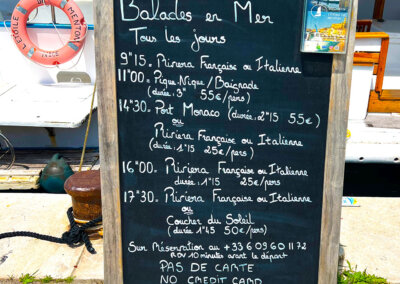 L'ETOILE DE MENTON
Balades en Mer
Tous les jours
9"15 = Riviera Française ou Italienne
11"00 = Pique-Nique / Baignade
(durée : 3" 55€/pers)
14"30 = Port Monaco (durée : 2"15 55€)
ou
Riviera Française ou Italienne
(durée 1"15 25€/pers)
16"00 = Riviera Française ou Italienne
durée : 1"15 25€/pers
17"30 = Riviera Française ou Italienne
ou
Coucher du Soleil
(durée 1"45 50€/pers)
Sur Réservation au +33 6 09 60 11 72
RDV 10 minutes avant le départ
PAS DE CARTE
NO CREDIT CARD